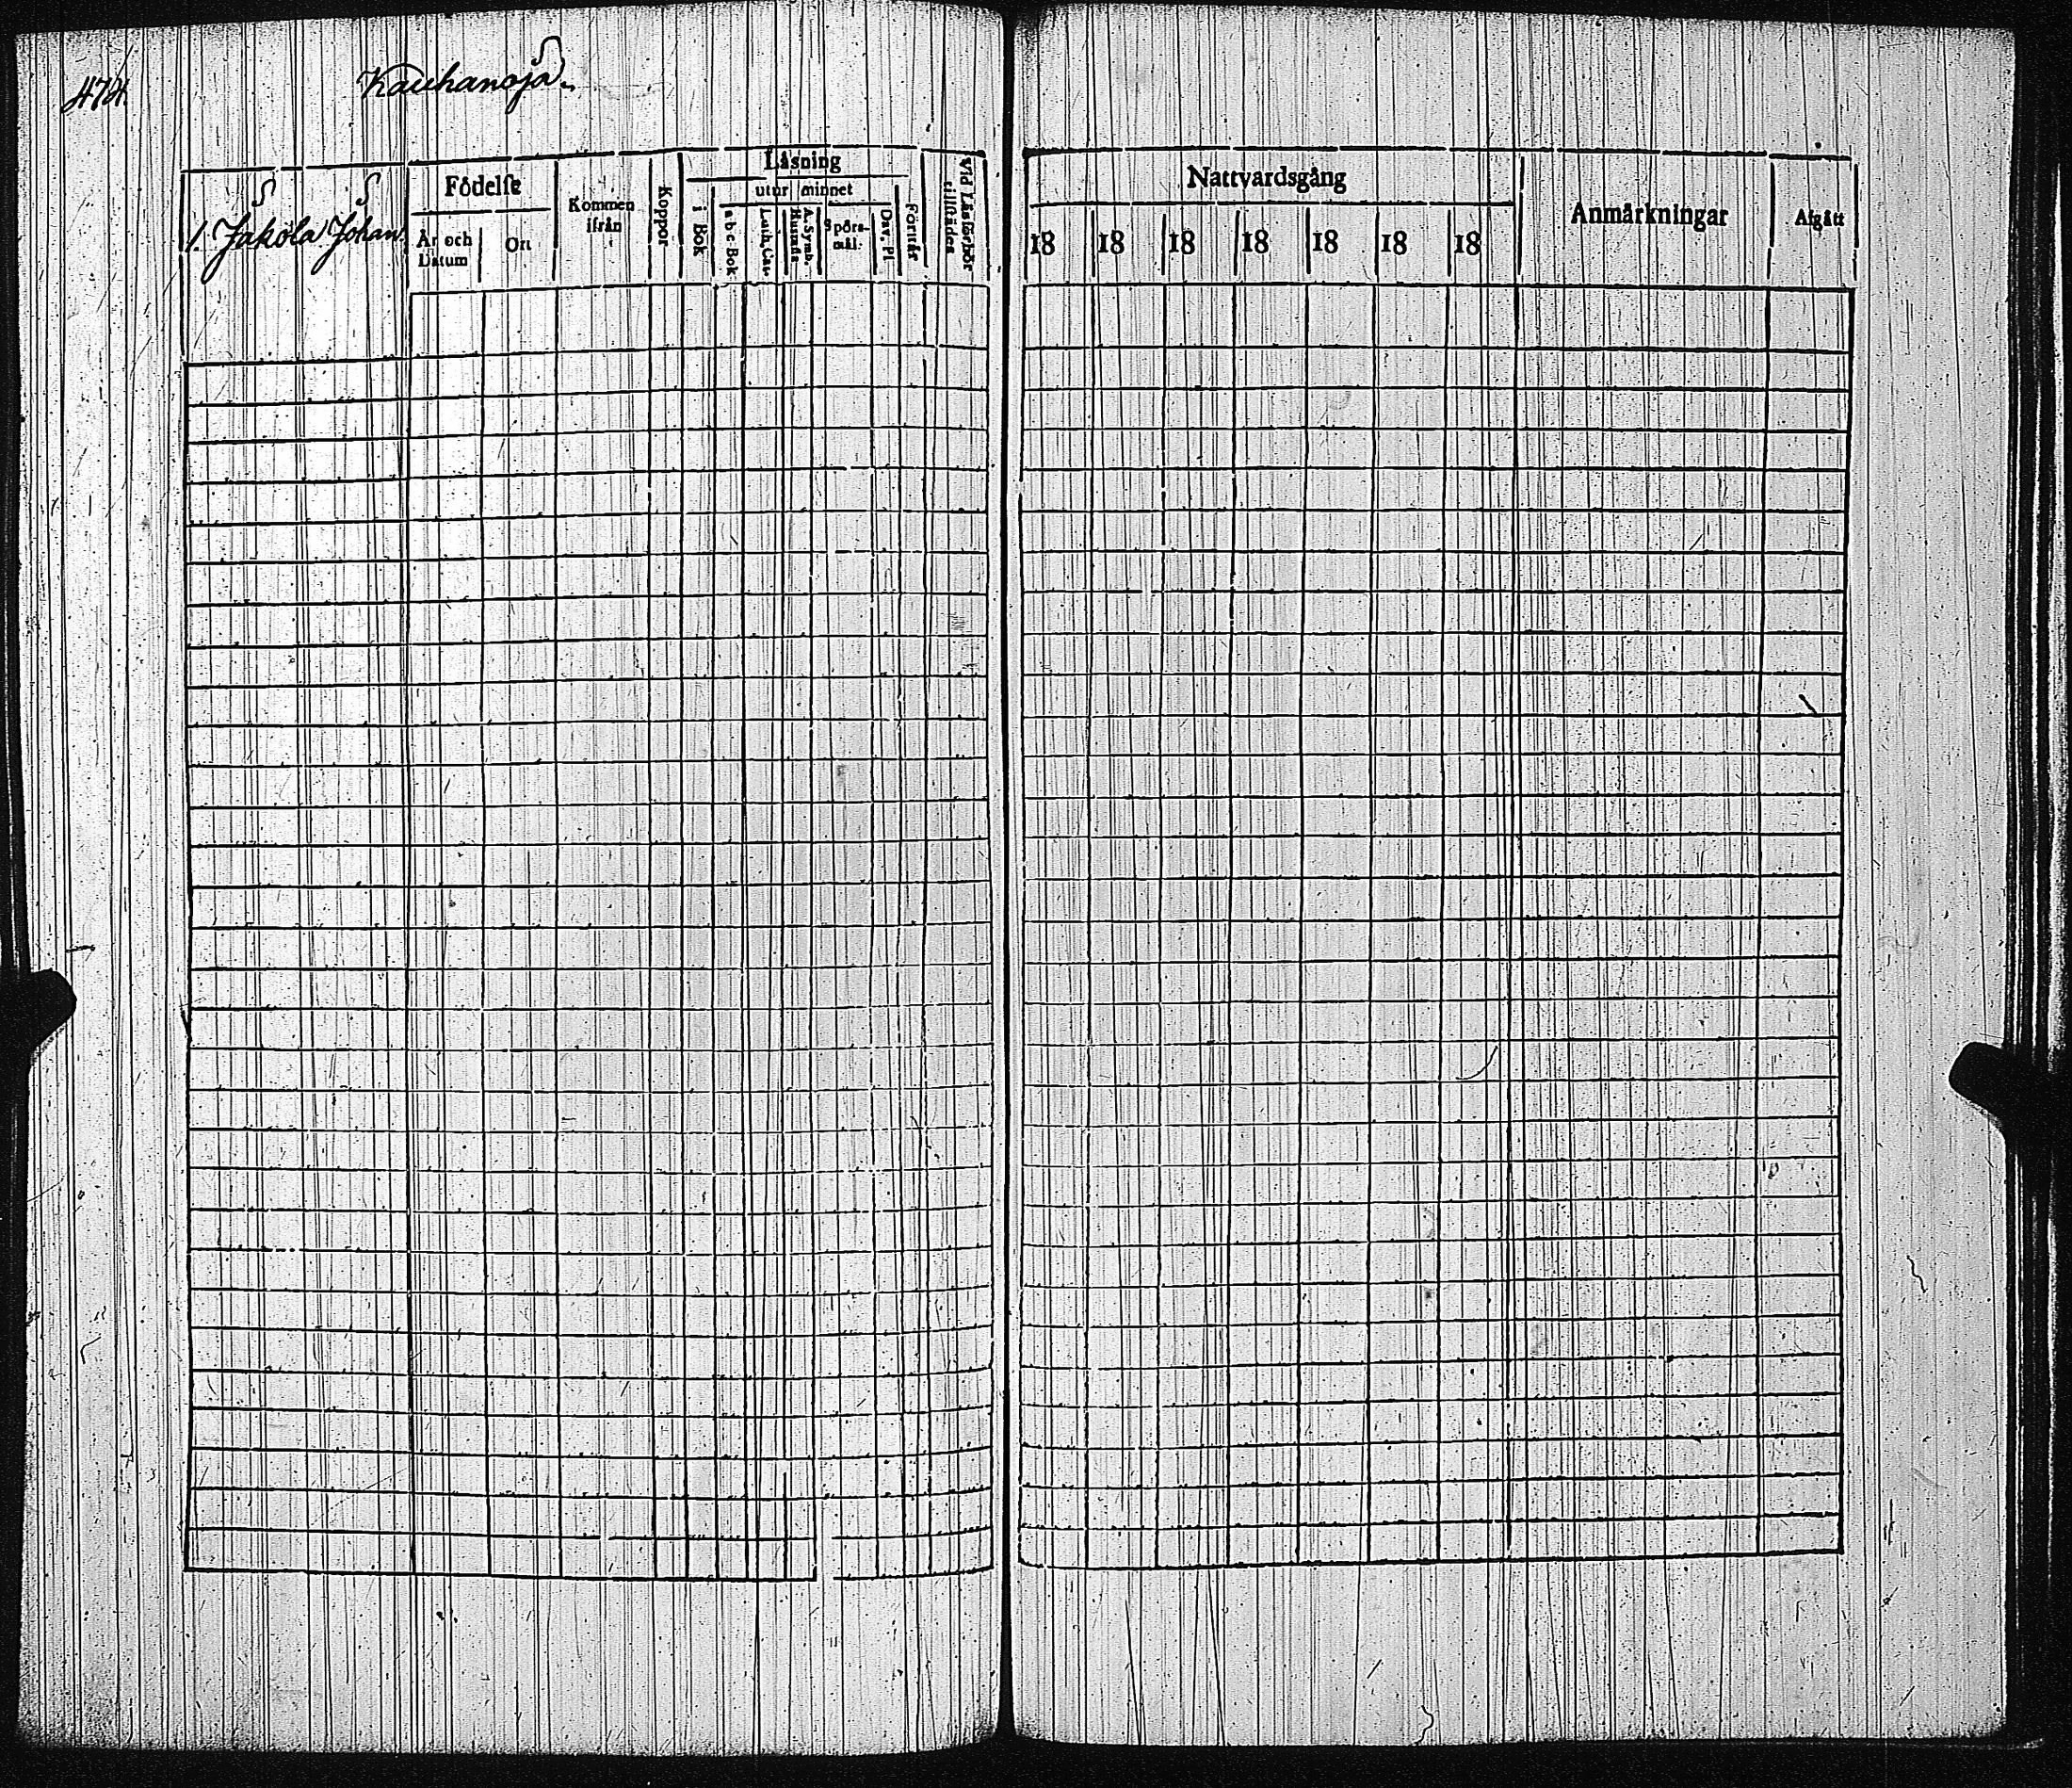 474.
Kauhanoja.
1. Jakola Johan
Födelse
År och Datum
Ort
Kommen ifrån
Koppor
Läsning
i Bok
utur minnet
a b c-Bok
Luth. Cat.
A. Symb. Hustafla
Spörsmål.
Dav. Ps
Förstår
Vid Läsförhör tillstädes
Nattvardsgång
18 18 18 18 18 18 18
Anmärkningar
Afgått